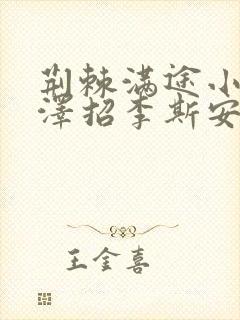 荆棘满途小
澤招李斯安
王金喜